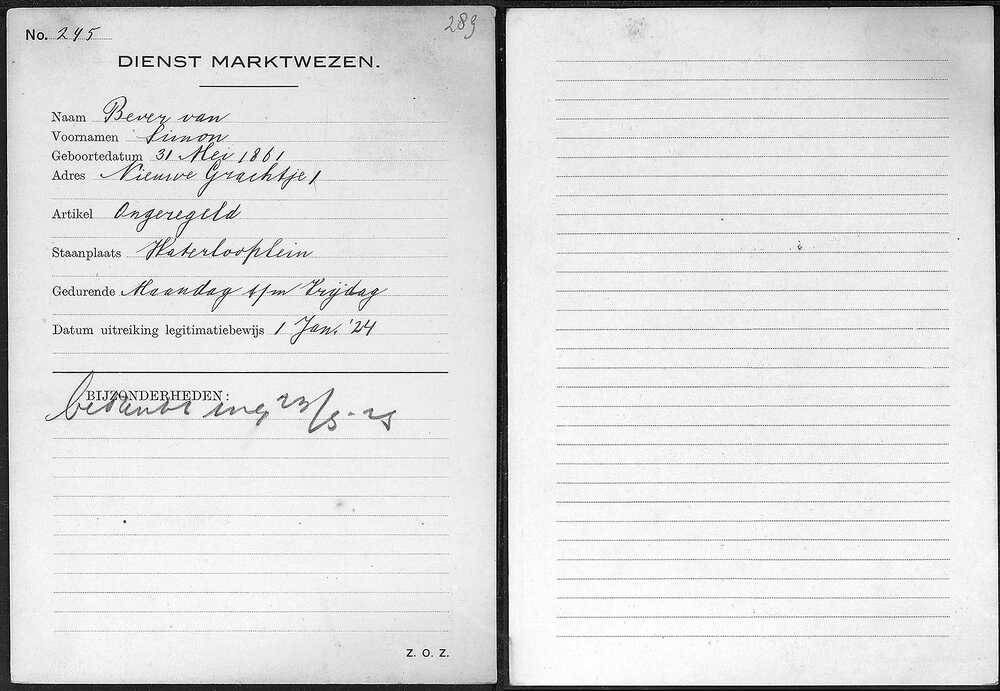 289
No. 245
DIENST MARKTWEZEN.
Naam Bever van
Voornamen Simon
Geboortedatum 31 Mei 1861
Adres Nieuwe Grachtje 1
Artikel Ongeregeld
Staanplaats Waterlooplein
Gedurende Maandag t/m Vrijdag
Datum uitreiking legitimatiebewijs 1 Jan. '24
BIJZONDERHEDEN:
bedankt
Z. O. Z.